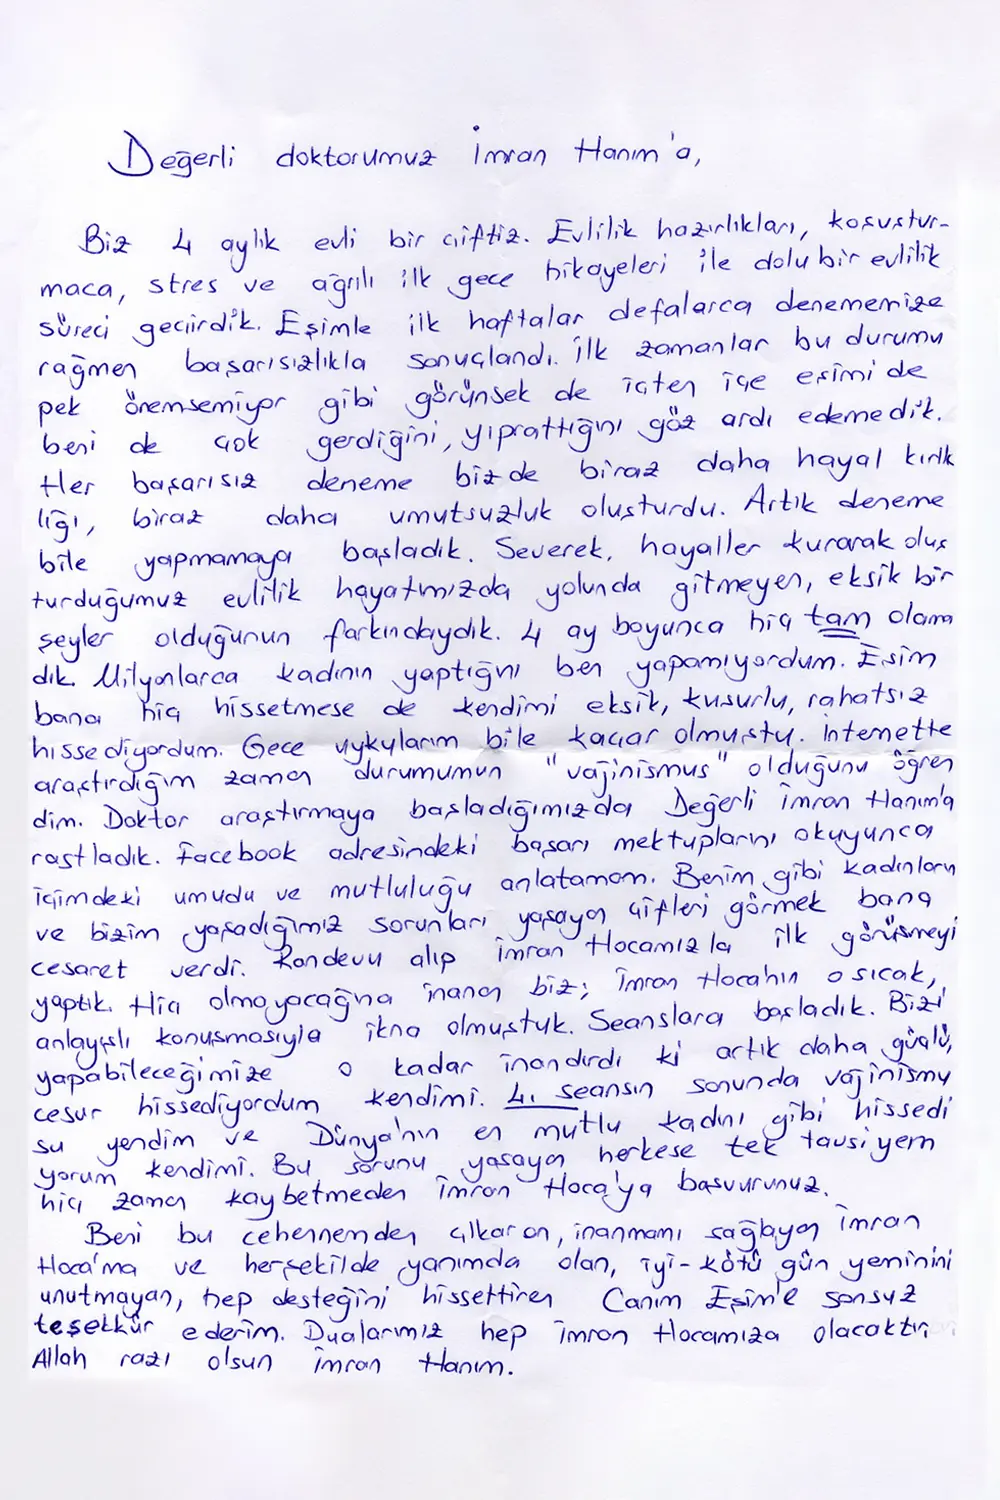 Değerli doktorumuz İmran Hanım'a,
Biz 4 aylık evli bir çiftiz. Evlilik hazırlıkları, koşustur-
maca, stres ve ağrılı ilk gece hikayeleri ile dolu bir evlilik
süreci geçirdik. Eşimle ilk haftalar defalarca denememize
rağmen başarısızlıkla sonuçlandı. İlk zamanlar bu durumu
pek önemsemiyor gibi görünsek de içten içe eşimi de
beni de çok gerdiğini, yıprattığını göz ardı edemedik.
Her başarısız deneme bizde biraz daha hayal kırık
lığı, biraz daha umutsuzluk oluşturdu. Artık deneme
bile yapmamaya başladık. Severek, hayaller kurarak oluş
turduğumuz evlilik hayatımızda yolunda gitmeyen, eksik bir
şeyler olduğunun farkındaydık. 4 ay boyunca hiç tam olama
dık. Milyonlarca kadının yaptığını ben yapamıyordum. Eşim
bana hiç hissetmese de kendimi eksik, kusurlu, rahatsız
hissediyordum. Gece uykularım bile kaçar olmuştu. İnternette
araştırdığım zaman durumumun "vajinismus" olduğunu öğren
dim. Doktor araştırmaya başladığımızda Değerli İmran Hanım'a
rastladık. Facebook adresindeki başarı mektuplarını okuyunca
içimdeki umudu ve mutluluğu anlatamam. Benim gibi kadınların
ve bizim yaşadığımız sorunları yaşayan çiftleri görmek bana
cesaret verdi. Randevu alıp İmran Hocamızla ilk görüşmeyi
yaptık. Hiç olmayacağına inanan biz; İmran Hoca'nın o sıcak,
anlayışlı konuşmasıyla ikna olmuştuk. Seanslara başladık. Bizi
yapabileceğimize o kadar inandırdı ki artık daha güçlü,
cesur hissediyordum kendimi. 4. seansın sonunda vajinismu
su yendim ve Dünya'nın en mutlu kadını gibi hissedi
yorum kendimi. Bu sorunu yaşayan herkese tek tavsiyem
hiç zaman kaybetmeden İmran Hoca'ya başvurunuz.
Beni bu cehennemden çıkaran, inanmamı sağlayan İmran
Hoca'ma ve herşekilde yanımda olan, iyi-kötü gün yeminini
unutmayan, hep desteğini hissettiren Canım Eşim'e sonsuz
teşekkür ederim. Dualarımız hep İmran Hocamıza olacaktır.
Allah razı olsun İmran Hanım.